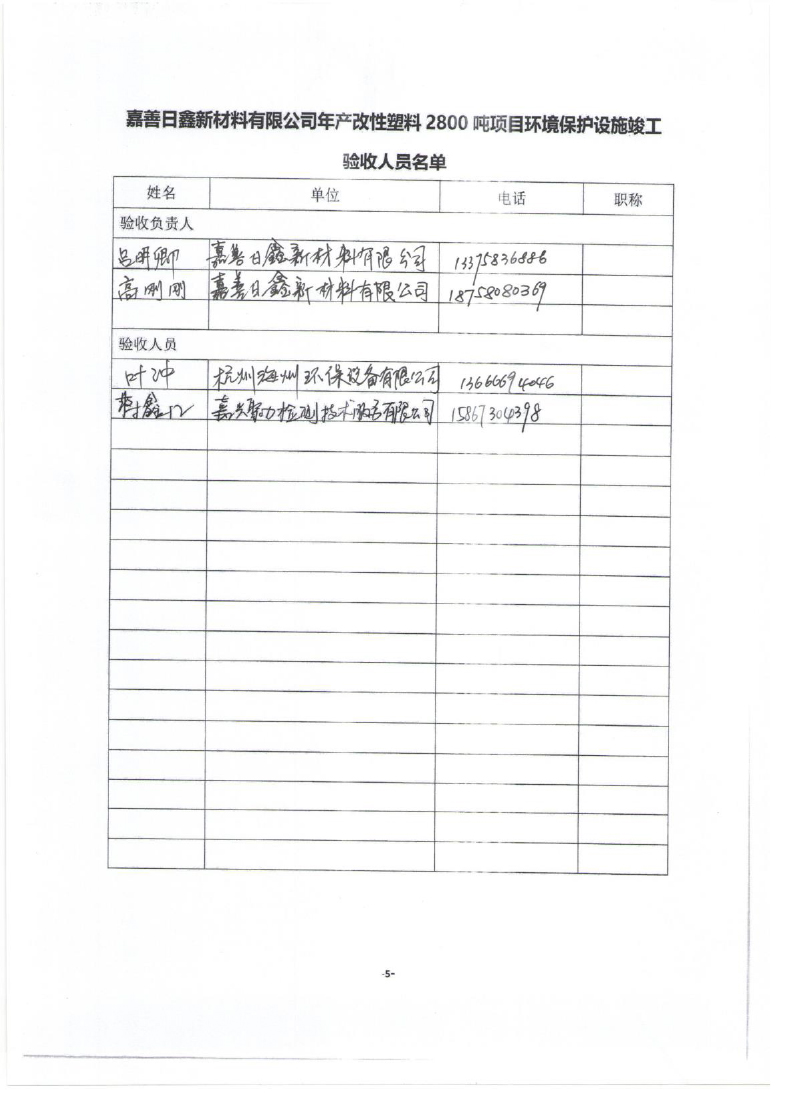 嘉善日鑫新材料有限公司年产改性塑料 2800 吨项目环境保护设施竣工
验收人员名单
姓名 单位 电话 职称
验收负责人
吕明卿 嘉善日鑫新材料有限公司 13375836886
高刚刚 嘉善日鑫新材料有限公司 18758080369
验收人员
叶冲 杭州海州环保设备有限公司 13666694046
嘉兴聚力检测技术服务有限公司 15867304398
-5-